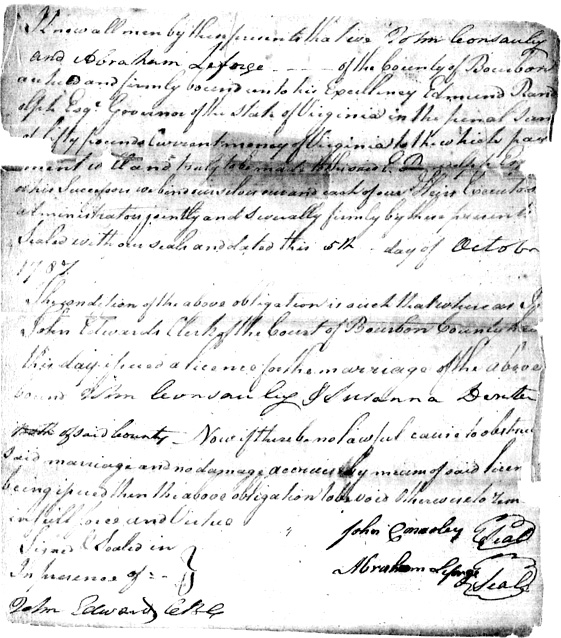 Know all men by these presents that we John Consauly
and Abraham Leforge - - - - of the County of Bourbon
are held and firmly bound unto his Excellency Edmund Rand
olph Esqr. Governor of the State of Virginia in the penal Sum
of fifty pounds Current money of Virginia to the which pay
ment well and truly to be made to the said E.
or his Successors we bind ourselves our and each of our Heirs Executors
administrators jointly and severally firmly by these presents
Sealed with our seals and dated this 5th day of October
1787
The condition of the above obligation is such that whereas I
John Edwards Clerk of the Court of Bourbon County have
this day issued a licence for the marriage of the above
bound John Consauley & Susanna
both of said County - Now if there be no lawful cause to obstruct
said marriage and no damage accrues by means of said licen
being issued then the above obligation to be void otherwise to rem
in full force and Virtue
Signed & Sealed in
In presence of :-
John Conzoley Seal
Abraham Leforge Seal
John Edwards